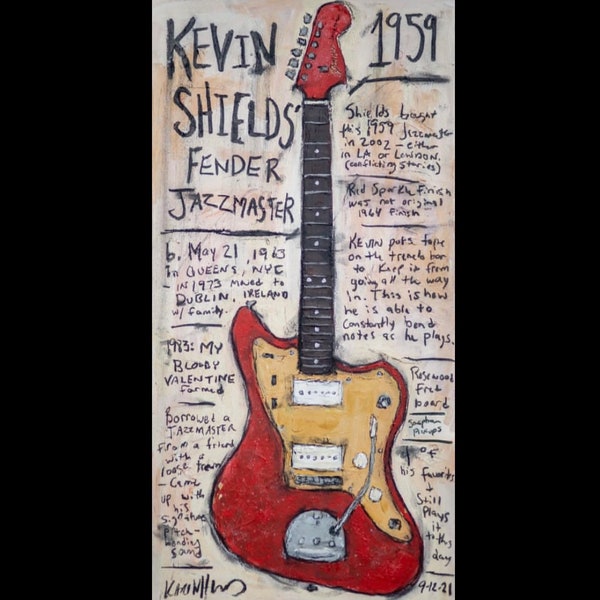 KEVIN
SHIELDS'
FENDER
JAZZMASTER
b. May 21, 1963
in QUEENS, NYC
- IN 1973 moved to
DUBLIN, IRELAND
w/ family.
1983: MY
BLOODY
VALENTINE
formed
Borrowed a
JAZZMASTER
from a friend
with a
loose trem
- Came
up with
his
signature
pitch-
bending
sound
1959
Shields bought
this 1959 Jazzmaster
in 2002 - either
in LA or LONDON.
(conflicting stories)
Red Sparkle Finish
was not original
1964 Finish
KEVIN puts tape
on the tremolo bar
to keep it from
going all the way
in. This is how
he is able to
constantly bend
notes as he plays.
Rosewood
Fret
board
Pickups
1 of
his favorites
+
Still
Plays
it
to this
day
9-12-21